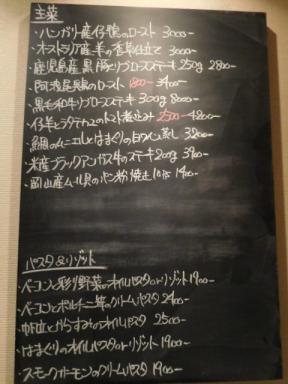 主菜
・ハンガリー産仔鴨のロースト 3000-
・オーストラリア産羊の香草仕立て 3000-
・鹿児島産黒豚リブロースステーキ250g 2800-
・阿波尾鶏のロースト 1800- 3400-
・黒毛和牛リブロースステーキ 300g 8000-
・仔羊とラタテュユのトマト煮込み 2500- 4800-
・鯛のムニエルとはまぐりの白ワイン蒸し 3200-
・米産ブラックアンガス牛のステーキ200g 3900-
・岡山産ムール貝のパン粉焼き 1400-
パスタ&リゾット
・ベーコンと彩り野菜のオイルパスタorリゾット 1900-
・ベーコンとポルチーニ茸のクリームパスタ 2400-
・帆立とからすみのオイルパスタ 2500-
・はまぐりのオイルパスタorリゾット 1900-
・スモークサーモンのクリームパスタ 1900-